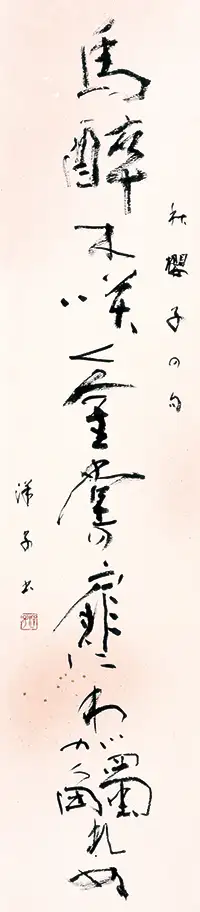 秋櫻子の句
馬醉木咲く金堂の扉にわが觸れぬ
洋子書